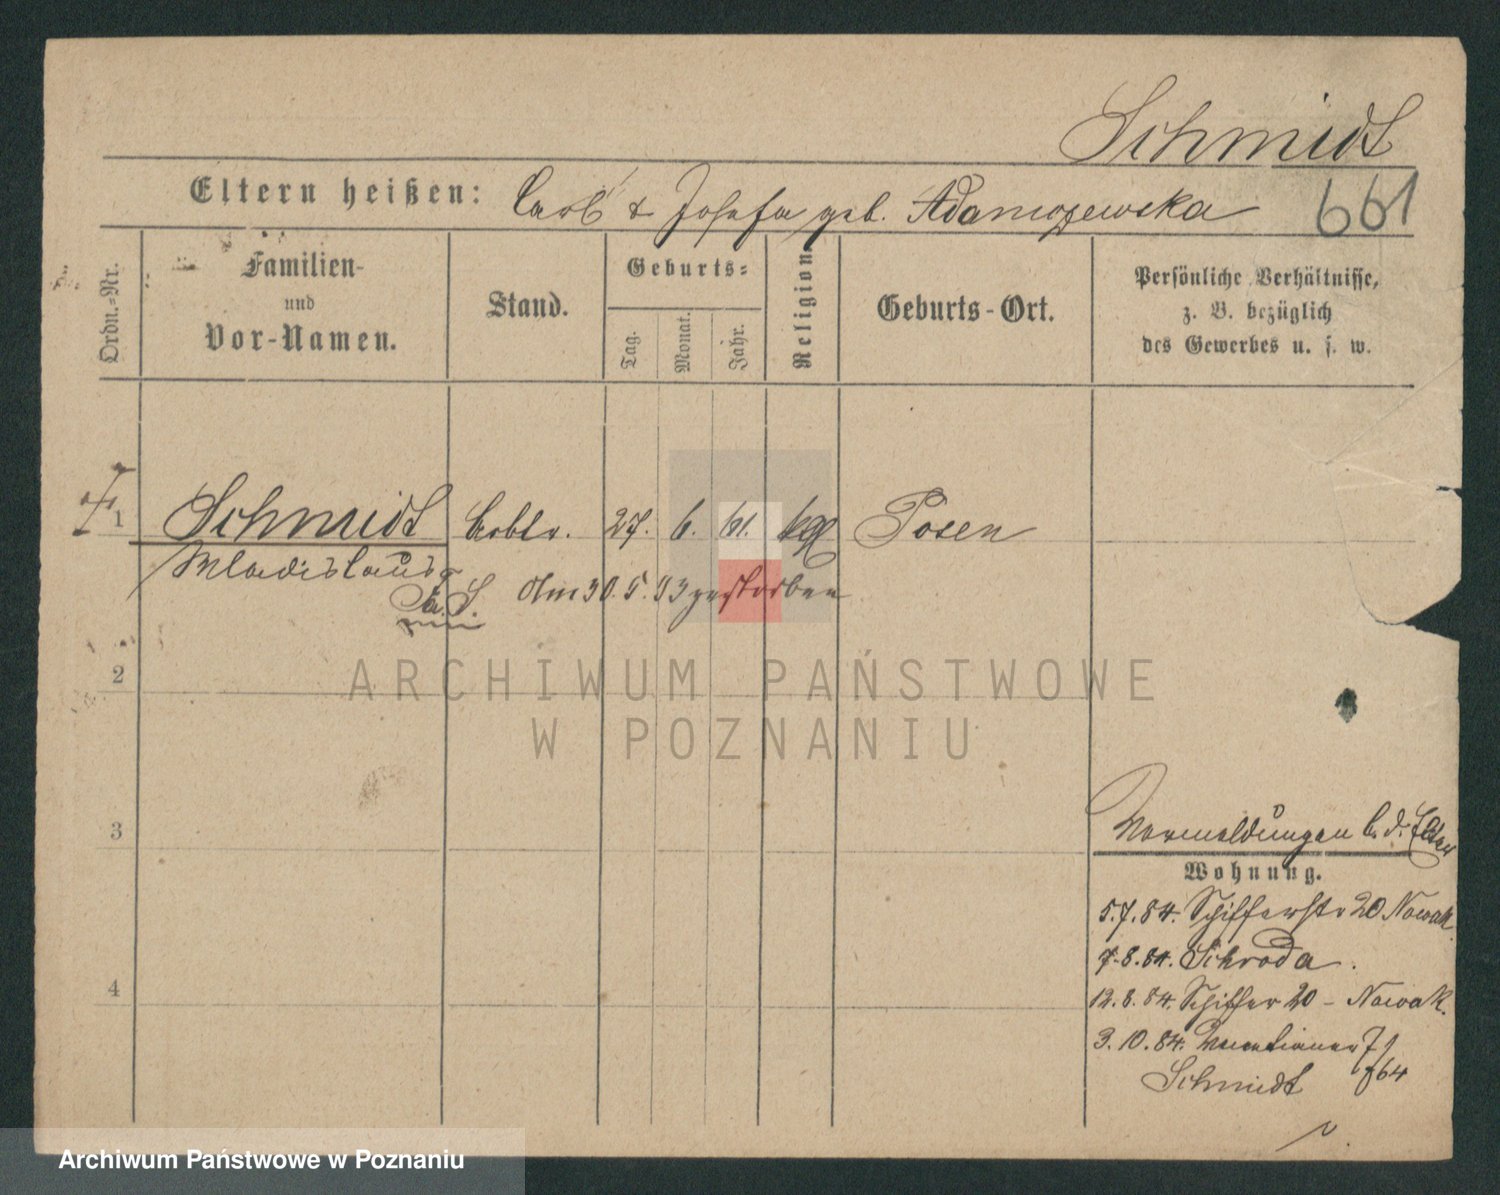 Schmidt
661
Eltern heißen: Carl & Josefa geb. Adamczewska
Ordn.-Nr.
Familien-
und
Vor-Namen.
Stand.
Geburts-
Tag.
Monat.
Jahr.
Religion.
Geburts-Ort.
Persönliche Verhältnisse,
z. B. bezüglich
des Gewerbes u. s. w.
1 Schmidt Arbtr. 27. 6. 61. kth Posen
Wladislaus
Am 30. 5. 93 gestorben
2
ARCHIWUM PAŃSTWOWE
W POZNANIU
3
Vormeldungen b. d. Eltern
Wohnung.
5.7.84. Schifferstr 20 Nowak.
7.8.84. Schroda.
12.8.84. Schiffer 20 – Nowak.
4
3.10.84. Venetianer 7
Schmidt f64
Archiwum Państwowe w Poznaniu